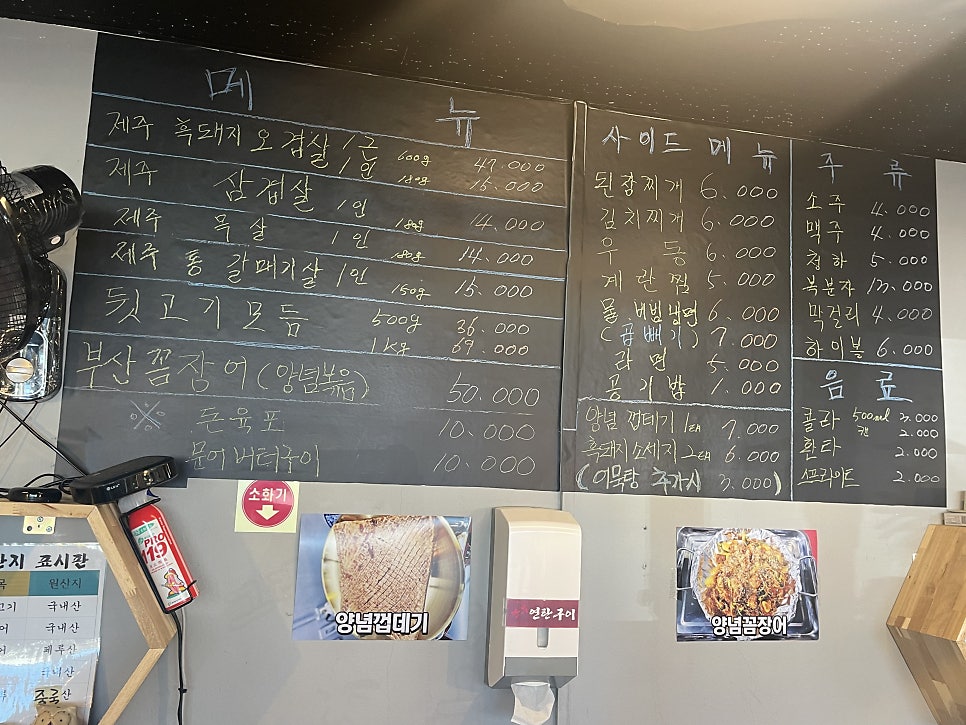 메 뉴
제주 흑돼지 오겹살 1근 600g 47.000
1인 180g 15.000
제주 삼겹살 1인 180g 14.000
제주 목살 1인 180g 14.000
제주 통 갈매기살 1인 150g 15.000
뒷고기 모듬 500g 36.000
1kg 69.000
부산꼼장어 (양념볶음) 50.000
※ 돈육포 10.000
문어버터구이 10.000
사이드 메뉴
된장찌개 6.000
김치찌개 6.000
우동 6.000
계란찜 5.000
물.비빔냉면 6.000
(곱빼기) 7.000
라면 5.000
공기밥 1.000
양념껍데기 1대 7.000
흑돼지소세지 2대 6.000
(어묵탕 추가시 3.000)
주류
소주 4.000
맥주 4.000
청하 5.000
복분자 12.000
막걸리 4.000
하이볼 6.000
음료
콜라 500ml 3.000
캔 2.000
환타 2.000
스프라이트 2.000
소화기
119
양념껍데기
열탄구이
양념꼼장어
산지 표시판
목 원산지
고기 국내산
어 국내산
어 페루산
국내산
중국산